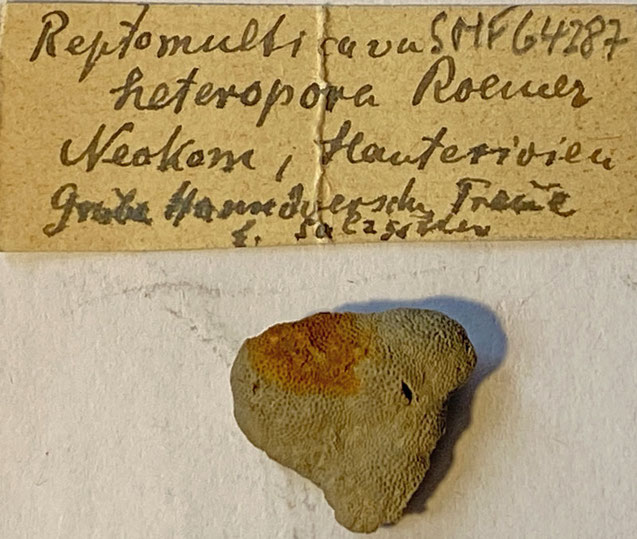 Reptomulticava SMF 64287
heteropora Roemer
Neokom, Hauterivien
Grube Hannoversche Treue
b. Salzgitter